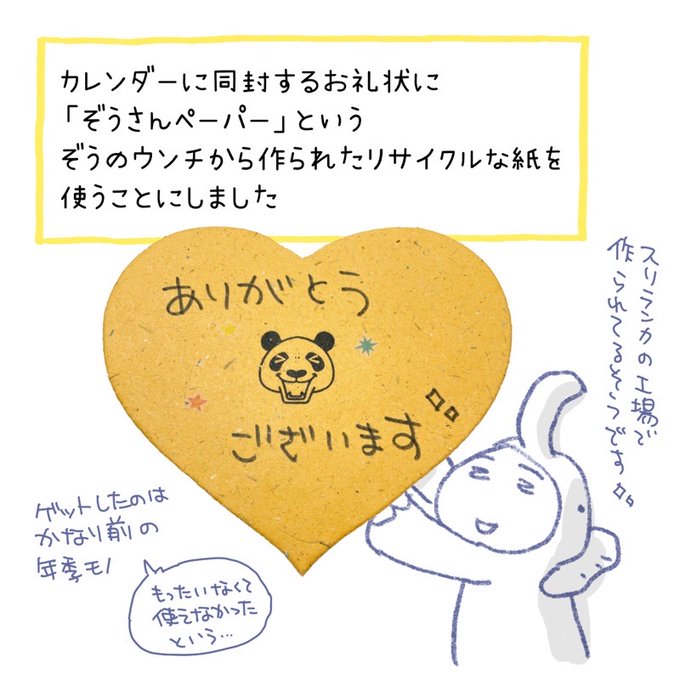 カレンダーに同封するお礼状に
「ぞうさんペーパー」という
ぞうのウンチから作られたリサイクルな紙を
使うことにしました
ありがとう
ございます
スリランカの工場で
作られてるそうです
ゲットしたのは
かなり前の
年季モノ
もったいなくて
使えなかった
という…